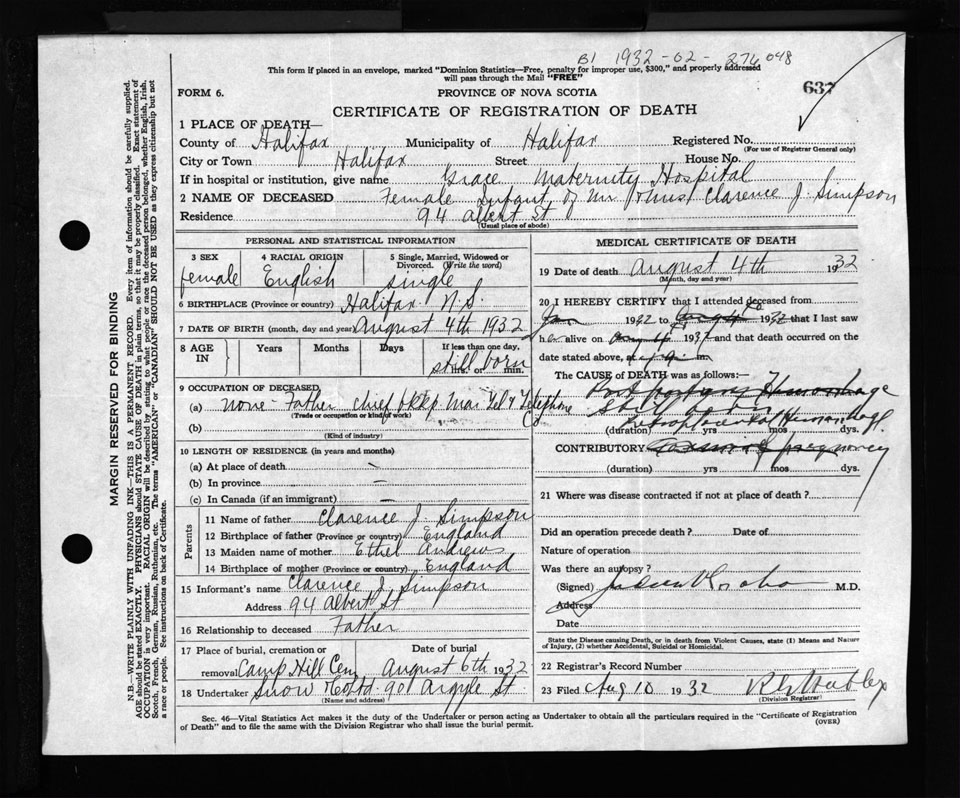 B1 1932-02-276048
This form if placed in an envelope, marked "Dominion Statistics—Free, penalty for improper use, $300," and properly addressed
will pass through the Mail "FREE"
637
FORM 6.
PROVINCE OF NOVA SCOTIA
CERTIFICATE OF REGISTRATION OF DEATH
1 PLACE OF DEATH—
County of Halifax Municipality of Halifax Registered No.
(For use of Registrar General only)
City or Town Halifax Street House No.
If in hospital or institution, give name Grace Maternity Hospital
2 NAME OF DECEASED Female Infant of Mr. & Mrs. Clarence J. Simpson
Residence 94 Albert St
(Usual place of abode)
PERSONAL AND STATISTICAL INFORMATION
3 SEX 4 RACIAL ORIGIN 5 Single, Married, Widowed or
Divorced. (Write the word)
female English single
6 BIRTHPLACE (Province or country) Halifax N.S.
7 DATE OF BIRTH (month, day and year) August 4th 1932
8 AGE IN Years Months Days If less than one day,
still born
hrs. or min.
9 OCCUPATION OF DECEASED
(a) none - Father chief bkkp Mar Tel & Telephone Co
(Trade or occupation or kind of work)
(b)
(Kind of industry)
10 LENGTH OF RESIDENCE (in years and months)
(a) At place of death
(b) In province
(c) In Canada (if an immigrant)
Parents
11 Name of father Clarence J. Simpson
12 Birthplace of father (Province or country) England
13 Maiden name of mother Ethel Andrews
14 Birthplace of mother (Province or country) England
15 Informant's name Clarence J. Simpson
Address 94 Albert St
16 Relationship to deceased Father
17 Place of burial, cremation or Date of burial
removal Camp Hill Cem August 6th 1932
18 Undertaker Snow & Co Ltd. 90 Argyle St.
(Name and address)
MEDICAL CERTIFICATE OF DEATH
19 Date of death August 4th 1932
(Month, day and year)
20 I HEREBY CERTIFY that I attended deceased from
Jan 1932 to Aug 4th 1932 that I last saw
her alive on 193 and that death occurred on the
date stated above, at m
The CAUSE of DEATH was as follows:—
Post partum Hemorrhage
Still born
Retroplacental Hemorrhage
(duration) yrs mos dys.
CONTRIBUTORY pregnancy
(duration) yrs mos dys.
21 Where was disease contracted if not at place of death?
Did an operation precede death? Date of
Nature of operation
Was there an autopsy?
(Signed) M.D.
Address
Date
State the Disease causing Death, or in death from Violent Causes, state (1) Means and Nature
of Injury, (2) whether Accidental, Suicidal or Homicidal.
22 Registrar's Record Number
23 Filed Aug 10 1932
(Division Registrar)
Sec. 46—Vital Statistics Act makes it the duty of the Undertaker or person acting as Undertaker to obtain all the particulars required in the "Certificate of Registration
of Death" and to file the same with the Division Registrar who shall issue the burial permit.
(OVER)
MARGIN RESERVED FOR BINDING
N.B.—WRITE PLAINLY WITH UNFADING INK—THIS IS A PERMANENT RECORD. Every item of information should be carefully supplied.
AGE should be stated EXACTLY. PHYSICIANS should STATE CAUSE OF DEATH in plain terms, so that it may be properly classified. Exact statement of
OCCUPATION is very important. RACIAL ORIGIN will be described by stating to what people or race the deceased person belonged, whether English, Irish,
Scotch, French, German, Russian, Ruthenian, etc. The terms "AMERICAN" or "CANADIAN" SHOULD NOT BE USED as they express citizenship but not
a race or people. See instructions on back of Certificate.